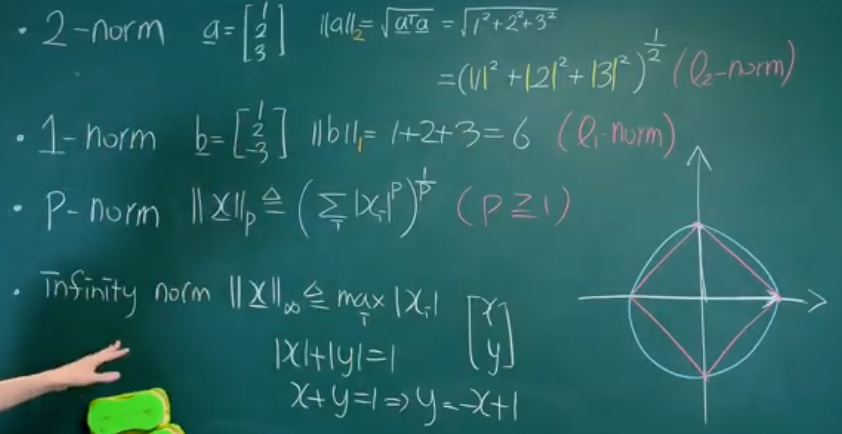 • 2-norm a = [1 2 3] ||a||₂ = √(aᵀa) = √(1²+2²+3²)
= (|1|² + |2|² + |3|²)^(1/2) (ℓ₂-norm)
• 1-norm b = [1 2 -3] ||b||₁ = 1+2+3 = 6 (ℓ₁-norm)
• P-norm ||x||p ≜ (Σᵢ |xᵢ|ᵖ)^(1/p) (P ≥ 1)
• infinity norm ||x||∞ ≜ maxᵢ |xᵢ| [x y]
|x|+|y|=1
x+y=1 ⇒ y=-x+1